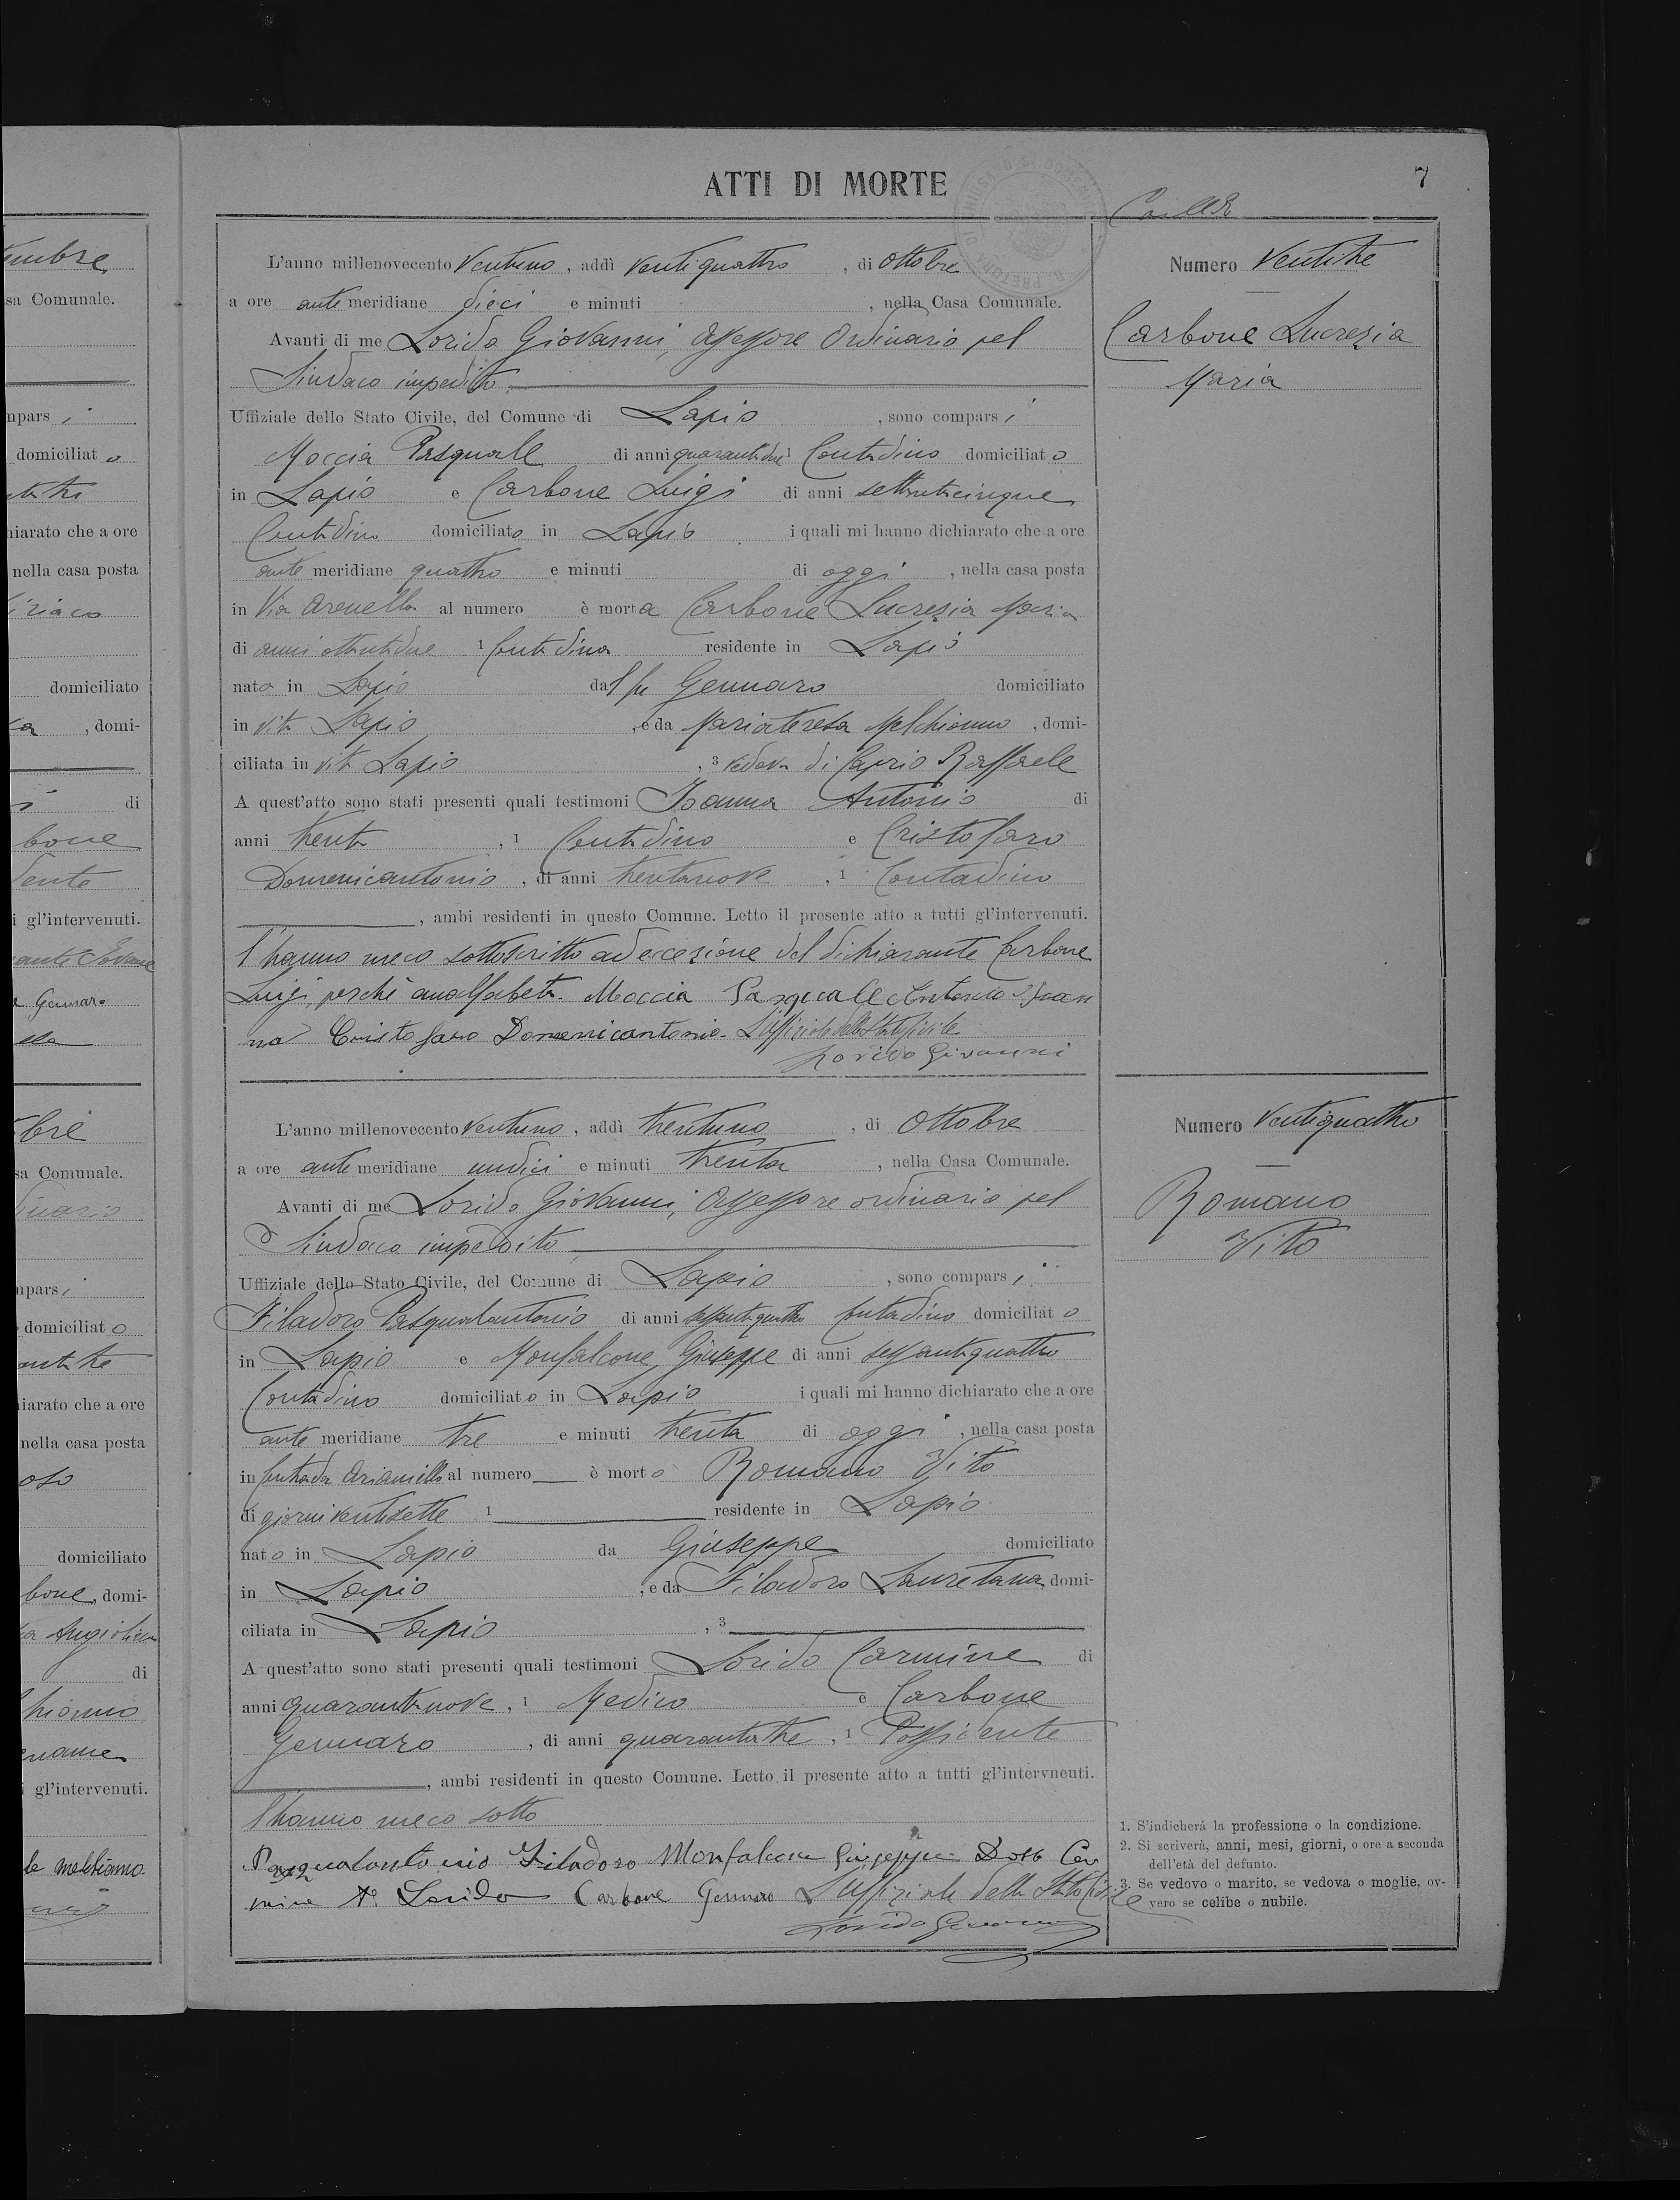 7
ATTI DI MORTE
L'anno millenovecento Ventuno, addì ventiquattro, di ottobre
a ore ante meridiane dieci e minuti , nella Casa Comunale.
Avanti di me Lorido Giovanni, Assessore Ordinario pel
Sindaco impedito
Uffiziale dello Stato Civile, del Comune di Lapio , sono compars i
Moccia Pasquale di anni quarantadue 1 Contadino domiciliat o
in Lapio e Carbone Luigi di anni settantacinque
Contadino domiciliato in Lapio i quali mi hanno dichiarato che a ore
ante meridiane quattro e minuti di oggi , nella casa posta
in Via Arenella al numero è morta Carbone Lucrezia Maria
di anni ottantadue 1 Contadina residente in Lapio
nata in Lapio dal fu Gennaro domiciliato
in vita Lapio , e da Mariateresa Melchionno , domi-
ciliata in vita Lapio , 3 vedova di Caprio Raffaele
A quest'atto sono stati presenti quali testimoni Ioanna Antonio di
anni trenta , 1 Contadino e Cristofaro
Domenicantonio , di anni trentanove , 1 Contadino
, ambi residenti in questo Comune. Letto il presente atto a tutti gl'intervenuti.
l'hanno meco sottoscritto ad eccezione del dichiarante Carbone
Luigi, perchè analfabeta. Moccia Pasquale Antonio Ioan
na Cristofaro Domenicantonio. L'Uffiziale dello Stato Civile
Lorido Giovanni
Numero Ventitre
Carbone Lucrezia
Maria
L'anno millenovecento ventuno , addì trentuno , di Ottobre
a ore ante meridiane undici e minuti trenta , nella Casa Comunale.
Avanti di me Lorido Giovanni, Assessore ordinario pel
Sindaco impedito
Uffiziale dello Stato Civile, del Comune di Lapio , sono compars i
Filadoro Pasqualantonio di anni sessantaquattro Contadino domiciliat o
in Lapio e Monfalcone Giuseppe di anni sessantaquattro
Contadino domiciliato in Lapio i quali mi hanno dichiarato che a ore
ante meridiane tre e minuti trenta di oggi , nella casa posta
in Contrada Arianiello al numero è morto Romano Vito
di giorni ventisette 1 residente in Lapio
nato in Lapio da Giuseppe domiciliato
in Lapio , e da Filadoro Lauretana domi-
ciliata in Lapio , 3
A quest'atto sono stati presenti quali testimoni Lorido Carmine di
anni quarantanove , 1 Medico e Carbone
Gennaro , di anni quarantatre , 1 Possidente
, ambi residenti in questo Comune. Letto il presente atto a tutti gl'intervneuti.
l'hanno meco sotto
Pasqualantonio Filadoro Monfalcone Giuseppe Dott Car
mine A. Lorido Carbone Gennaro L'Uffiziale dello Stato Civile
Lorido Giovanni
Numero Ventiquattro
Romano
Vito
1. S'indicherá la professione o la condizione.
2. Si scriverà, anni, mesi, giorni, o ore a seconda
dell'età del defunto.
3. Se vedovo o marito, se vedova o moglie, ov-
vero se celibe o nubile.